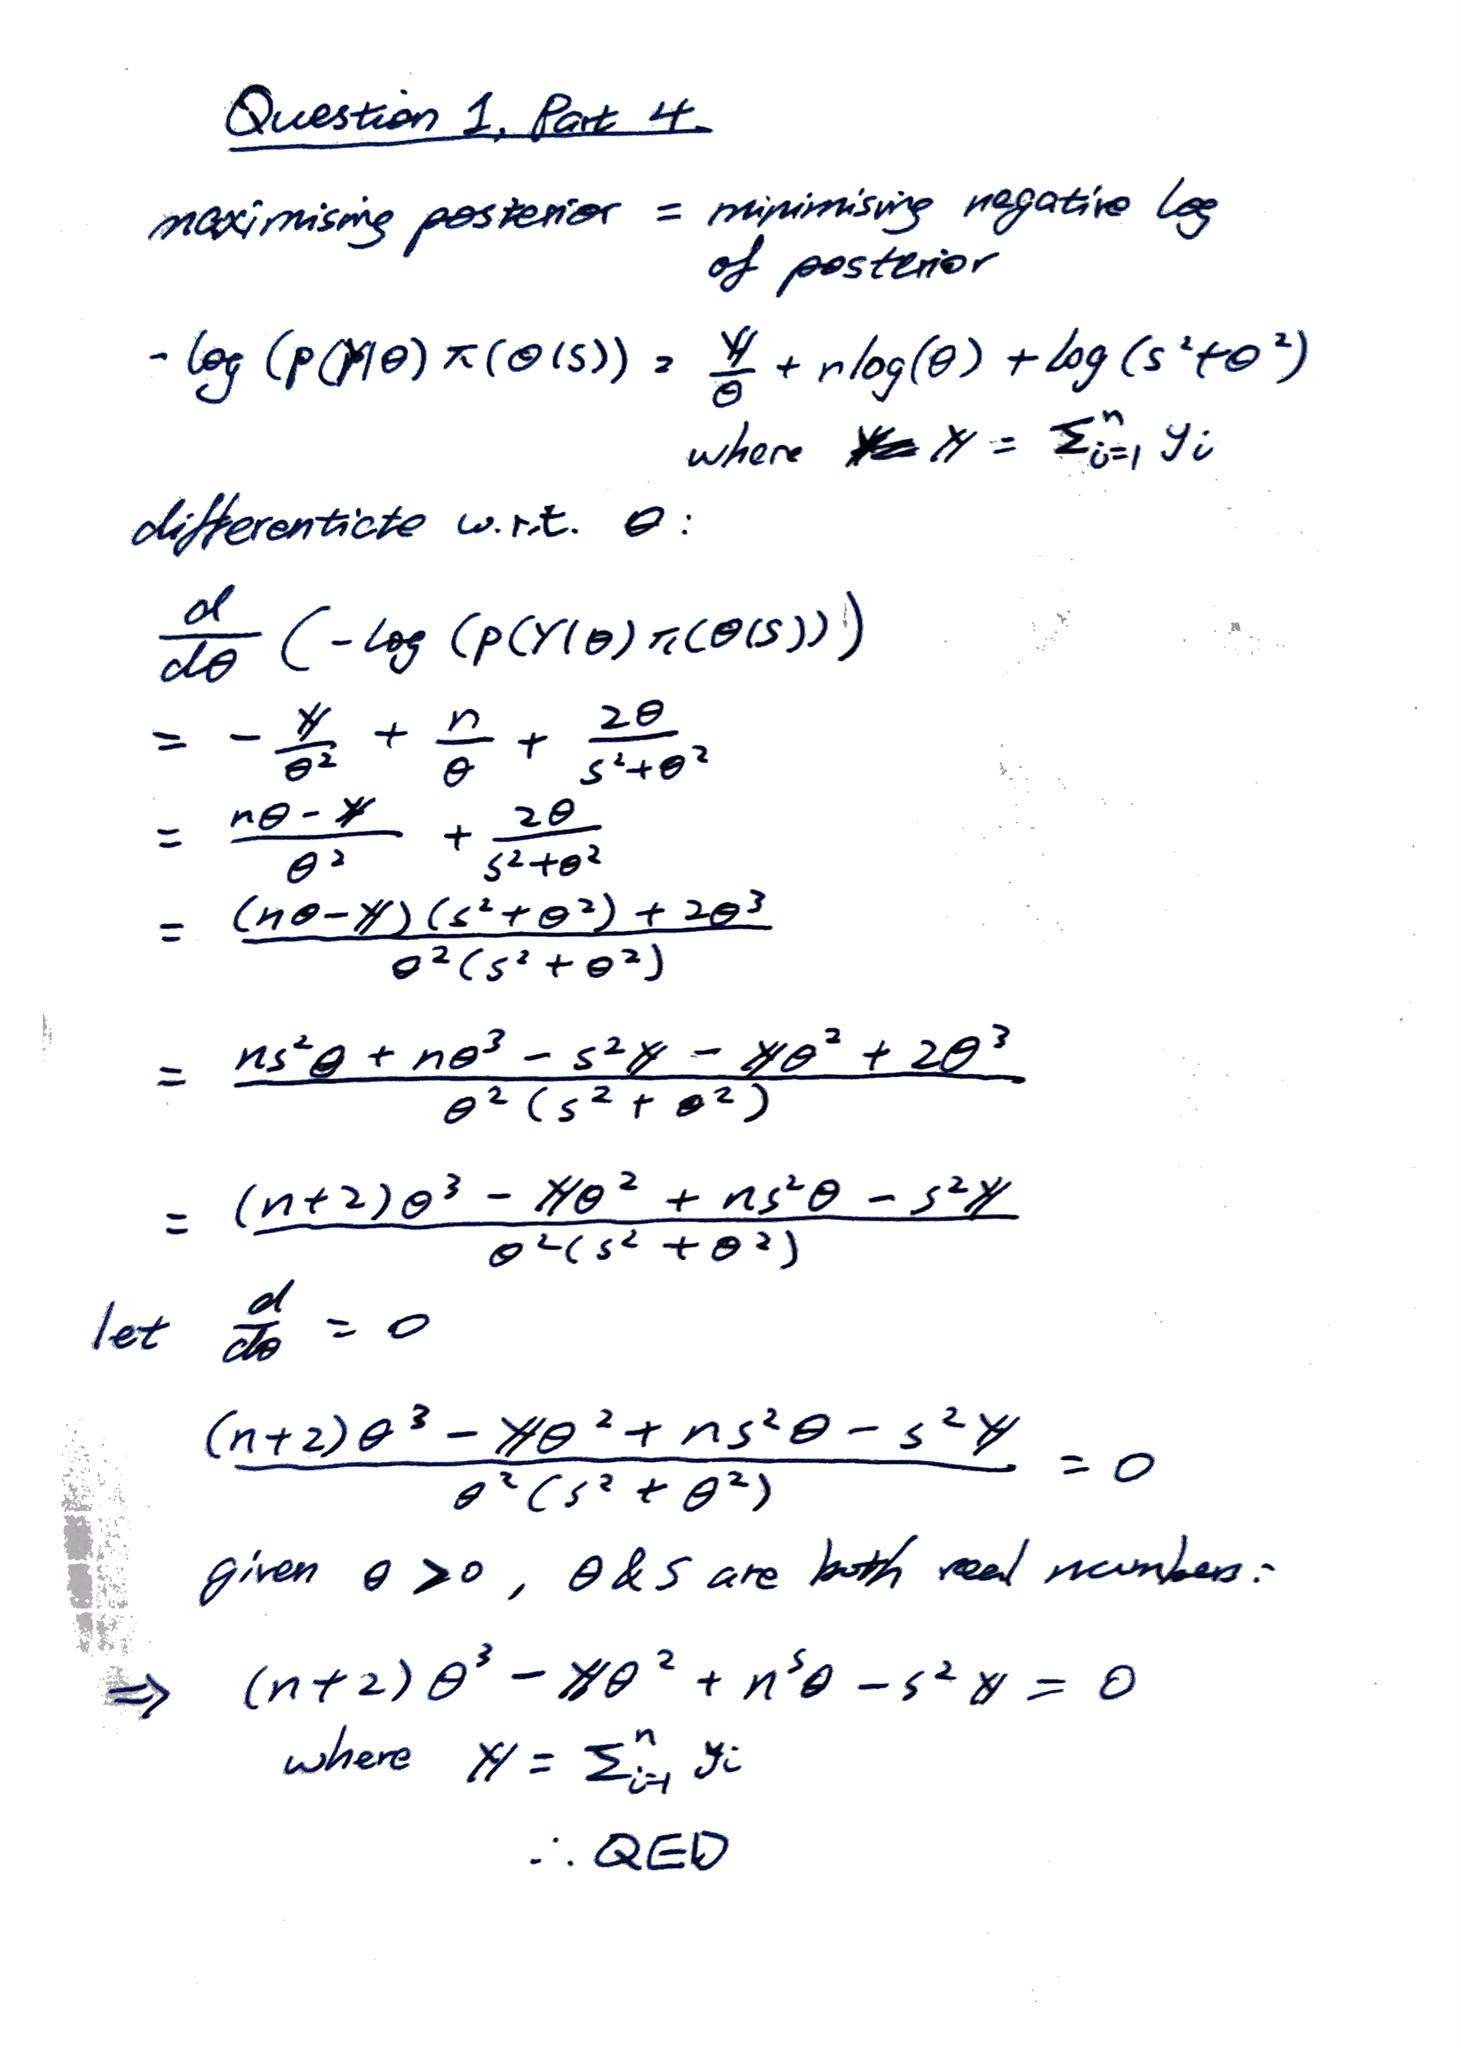 Question 1, Part 4.
maximising posterior = minimising negative log
of posterior
- log (p(Y|θ) π(θ|s)) = Y/θ + n log(θ) + log (s²+θ²)
where Y = Σⁿᵢ₌₁ yᵢ
differentiate w.r.t. θ:
d/dθ (-log (p(Y|θ) π(θ|s)))
= - Y/θ² + n/θ + 2θ/(s²+θ²)
= (nθ-Y)/θ² + 2θ/(s²+θ²)
= ((nθ-Y)(s²+θ²) + 2θ³)/(θ²(s²+θ²))
= (ns²θ + nθ³ - s²Y - Yθ² + 2θ³)/(θ²(s²+θ²))
= ((n+2)θ³ - Yθ² + ns²θ - s²Y)/(θ²(s²+θ²))
let d/dθ = 0
((n+2)θ³ - Yθ² + ns²θ - s²Y)/(θ²(s²+θ²)) = 0
given θ >0, θ & s are both real numbers:
⇒ (n+2)θ³ - Yθ² + nˢθ - s²Y = 0
where Y = Σⁿᵢ₌₁ yᵢ
∴ QED